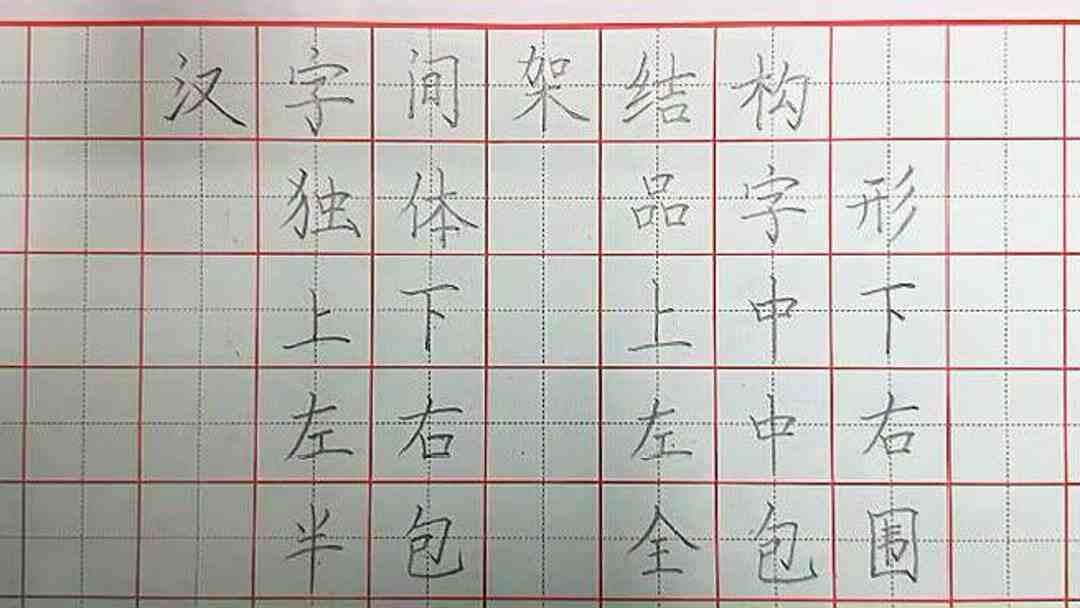 汉字间架结构
独体 品字形
上下 上中下
左右 左中右
半包 全包围